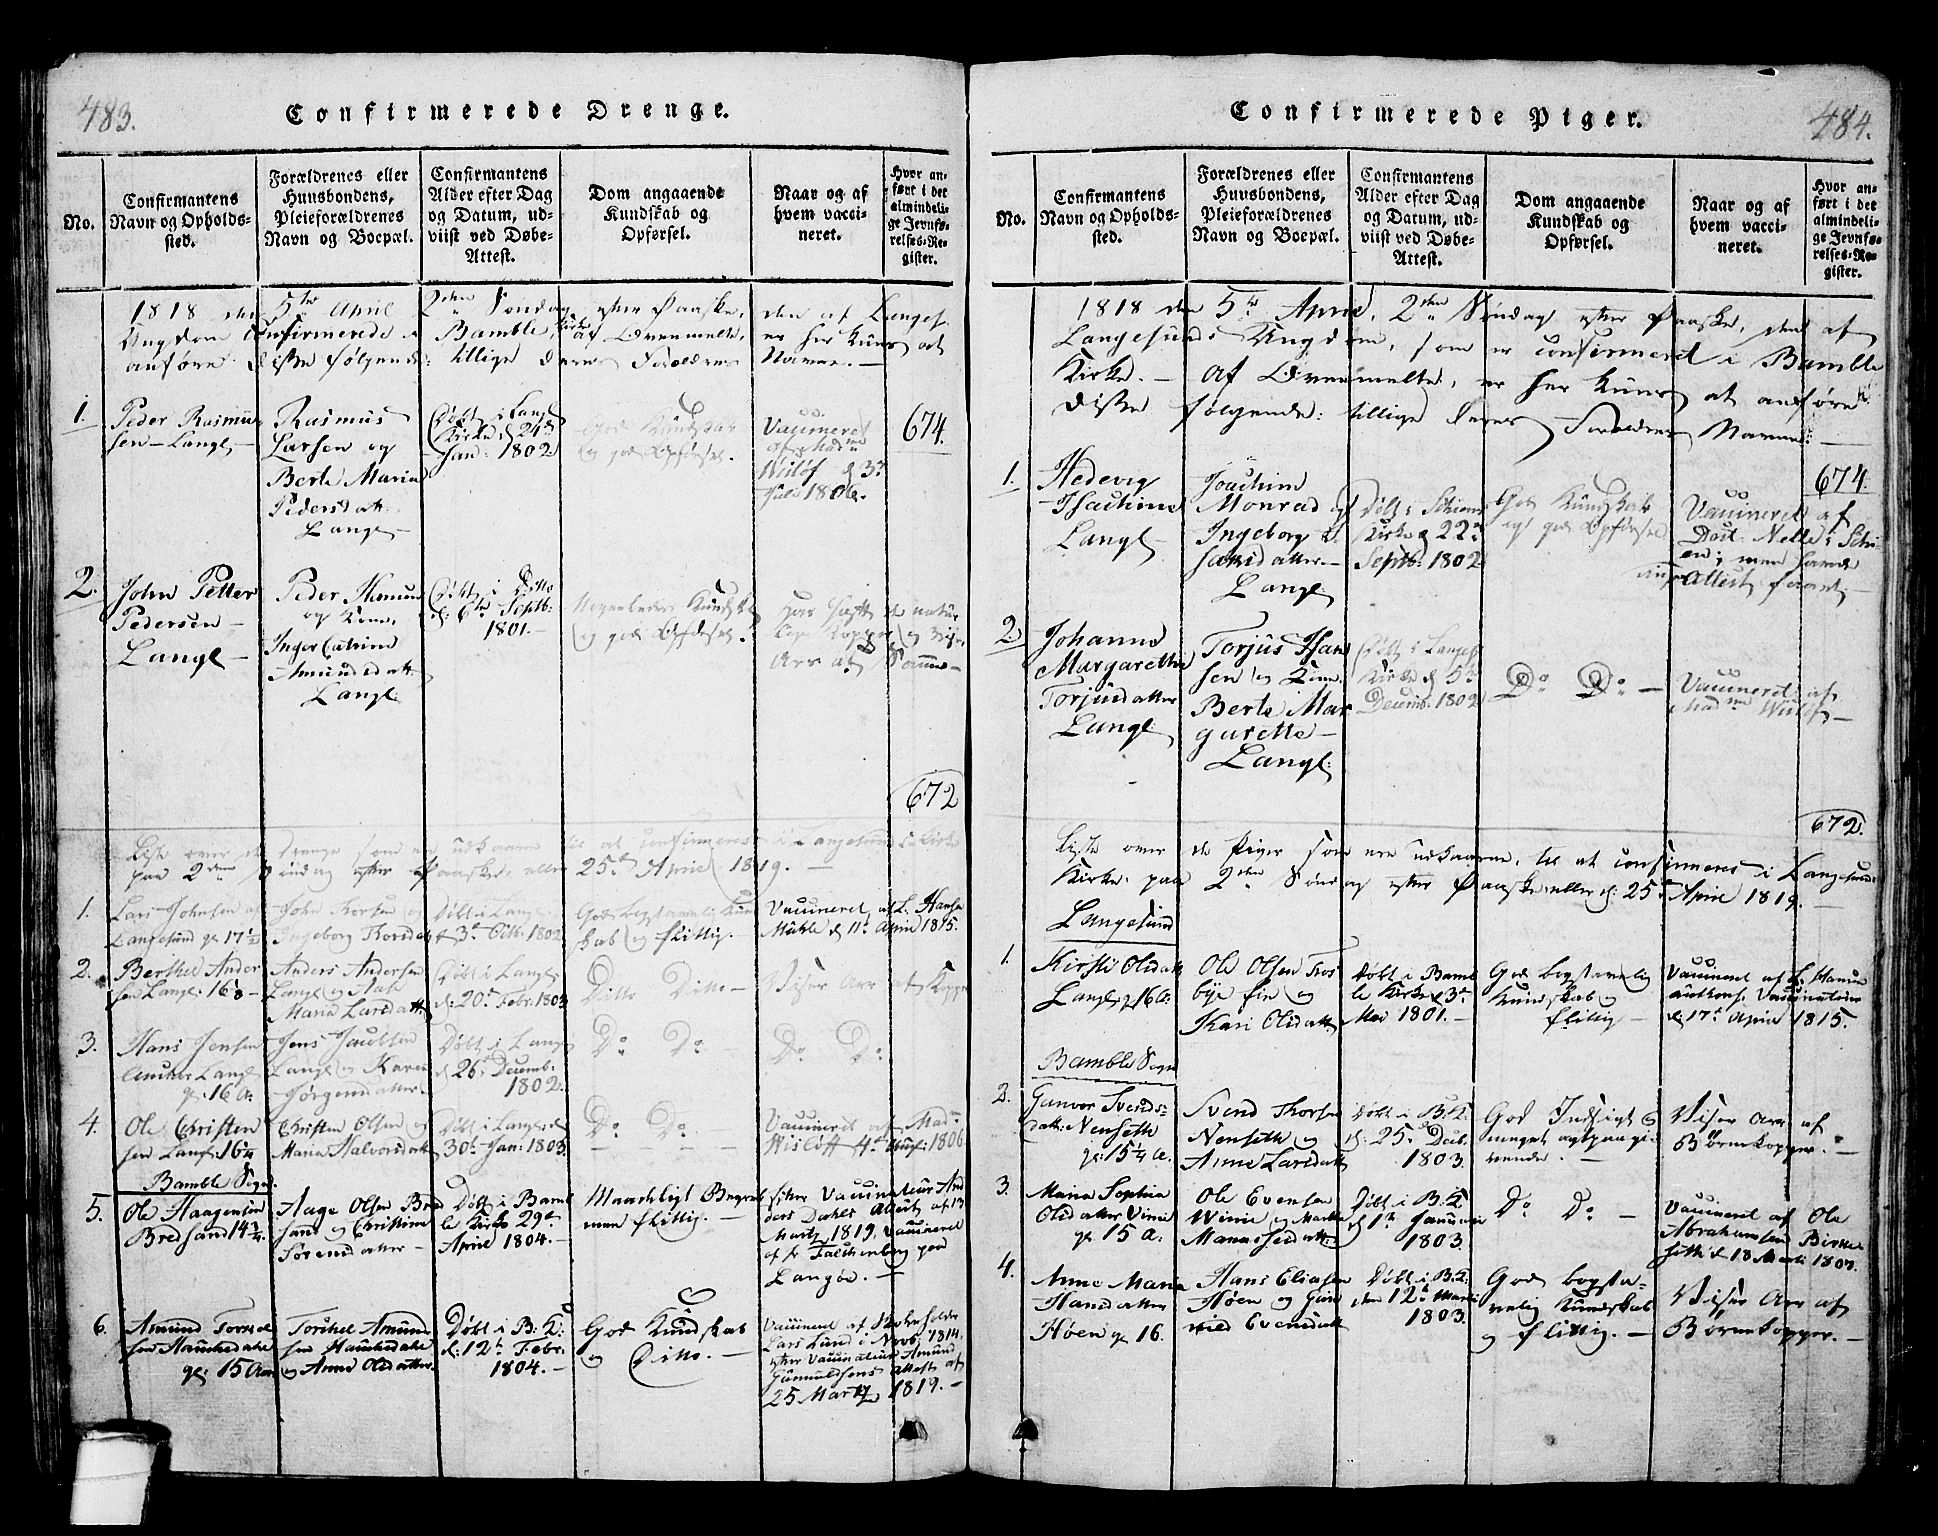 483.
Confirmerede Drenge.
No.
Confirmantens
Navn og Opholds-
sted.
Forældrenes eller
Huusbondens,
Pleieforældrenes
Navn og Boepæl.
Confirmantens
Alder efter Dag
og Datum, ud-
viist ved Døbe-
Attest.
Dom angaaende
Kundskab og
Opførsel.
Naar og af
hvem vacci-
neret.
Hvor an-
ført i det
almindeli-
ge Jevnfø-
relses-Re-
gister.
1818 den 5te April 2den Søndag efter Paaske, den af Langes.
Ungdom Confirmerede i Bamble Kirke af Ovenmelte, er her Kuns at
anføre Disse følgende: tillige deres Forældres Navne. —
1.
Peder Rasmu
sen — Langs —
Rasmus
Larsen og
Berte Maria
Pedersdatt:
Lange —
Døbt i Langs:
Kirke d. 24de
Jan: 1802
God Kundskab
og god Opførsel.
Vaccineret
af Madme
Wisløf d 3de
Juli 1806.
674.
2.
John Petter
Pedersen —
Langs —
Peder Amun
og Kone,
Inger Catrine
Amundsdatt:
Langs:
Døbt i Ditto
d: 6te Septb:
1801. —
Kundsk
og god Opførsel.
har havt de natur
lige Kopper og Viser
Arr af Samme —
672
Liste over de Drenge som er udkaarne til at confirmeres i Langesunds Kirke
paa 2den Søndag efter Paaske eller 25de April 1819. —
1.
Lars Johnsen af
Langesund gl 17½
John Thorsen og
Ingeborg Thorsdatt
Døbt i Langs:
d 3de Octb: 1802
God bogstavelig Kun
skab og flittig.
Vaccineret af L. Hansen
Mühle d 11te April 1815.
2.
Berthel Ander
sen Langs: 16
Anders Andersen
Langs og
Maria Larsdatt
Døbt i Langs:
d: 20de Febr: 1803
Ditto Ditto —
Viser Arr af Kopper
3.
Hans Jensen
Langs
gl: 16 A:
Jens Jacobsen
Langs og Karen
Jørgensdatter
Døbt i Langs
d 26de Decemb:
1802.
Do Do —
Do Do
4.
Ole Christen
sen Langs: 16¼
Christen Olsen og
Maria Halvorsdatt
Døbt i Langs: d
30te Jan: 1803
Do Do
Vaccineret af Madme
Wisløff 4de 1806
Bamble Sogn
5.
Ole Haagensen
Bredsand 14¾
Aage Olsen Bred
sand og Christine
Sørensdatter —
Døbt i Bamb
le Kirke 29de
April 1804. —
Maadeligt Begreb
men flittig. —
Vaccinateur And
ders Dahls Attest af 13
Martz 1819, Vaccineret
af hr Falchenberg paa
Langøe. —
6.
Amund Torkel
sen
gl: 15 Aar
Torkel Amund
sen
og Anne Olsdatter
Døbt i B: K:
d: 12te Febr:
1804. —
God Kundskab
og Ditto. —
Vaccineret af
Lars Lund i Novb: 1814.
efter Vaccinateur Amund
Gunnuldsens attest af
25 Martz 1819. —
484.
Confirmerede Piger.
No.
Confirmantens
Navn og Opholds-
sted.
Forældrenes eller
Huusbondens,
Pleieforældrenes
Navn og Boepæl.
Confirmantens
Alder efter Dag
og Datum, ud-
viist ved Døbe-
Attest.
Dom angaaende
Kundskab og
Opførsel.
Naar og af
hvem vacci-
neret.
Hvor an-
ført i det
almindeli-
ge Jevnfø-
relses-Re-
gister.
1818 den 5te April, 2den Søndag efter Paaske, den af
Langesunds Ungdom, som er confirmeret i Bamble
Kirke. — Af Ovenmelte, er her Kuns at anføre
Disse følgende: tillige deres Forældres Navne: —
1.
Hedevig
Langs —
Joachim
Monrad og
Ingeborg
Langs:
Døbt i Schiens
Kirke d 22de
Septb: 1802
God Kundskab
og god Opførsel
Vaccineret af
Doct. Nelle i Schi-
en; men havde
Attest faaet —
674.
2.
Johanne
Margarethe
Torjusdatter
Langs —
Torjus Han
sen og Kone
Berte Mar
garette —
Langs:
Døbt i Langes
Kirke d 5te
Decemb. 1802
Do Do —
Vaccineret af
Madme Wisløf —
672.
Liste over de Piger som ere udkaarne, til at confirmeres i Langesunds
Kirke paa 2den Søndag efter Paaske eller d: 25de April 1819. —
Langesund
1.
Kirsti Olsdatt
Langs: gl 16 A:
Ole Olsen
og
Kari Olsdatt
Døbt i Bamb
le Kirke d 3de
Mai 1801. —
God bogstavelig
Kundskab og
flittig —
Vaccineret af L. Hansen
Vaccinateur
d 17de April 1815.
Bamble Sogn
2.
Gunvor Svends-
datt: Nenseth
gl: 15¼ A.
Svend Thorsen
Nenseth og
Anne Larsdatt
Døbt i B: K:
d: 25de Decb.
1803.
God Indsigt og
meget agtpaagi-
vende. —
Viser Arr af
Børnekopper. —
3.
Maria Sophia
Olsdatter Vinie
gl 15 A.
Ole Evensen
Winie og Marthe
Manassedatt:
Døbt i B: K
d 1te Januari
1803.
Do Do —
Vaccineret af Ole
Abrahamsen
18 Marti 1807.
4.
Anne Maria
Hansdatter
Høen gl 16.
Hans Eliasen
Høen og Gun
nild Evensdatt
Døbt i B: K:
den 12te Marti
1803.
God bogsta-
velig Kundskab
og flittig. —
Viser Arr af
Børnekopper. —